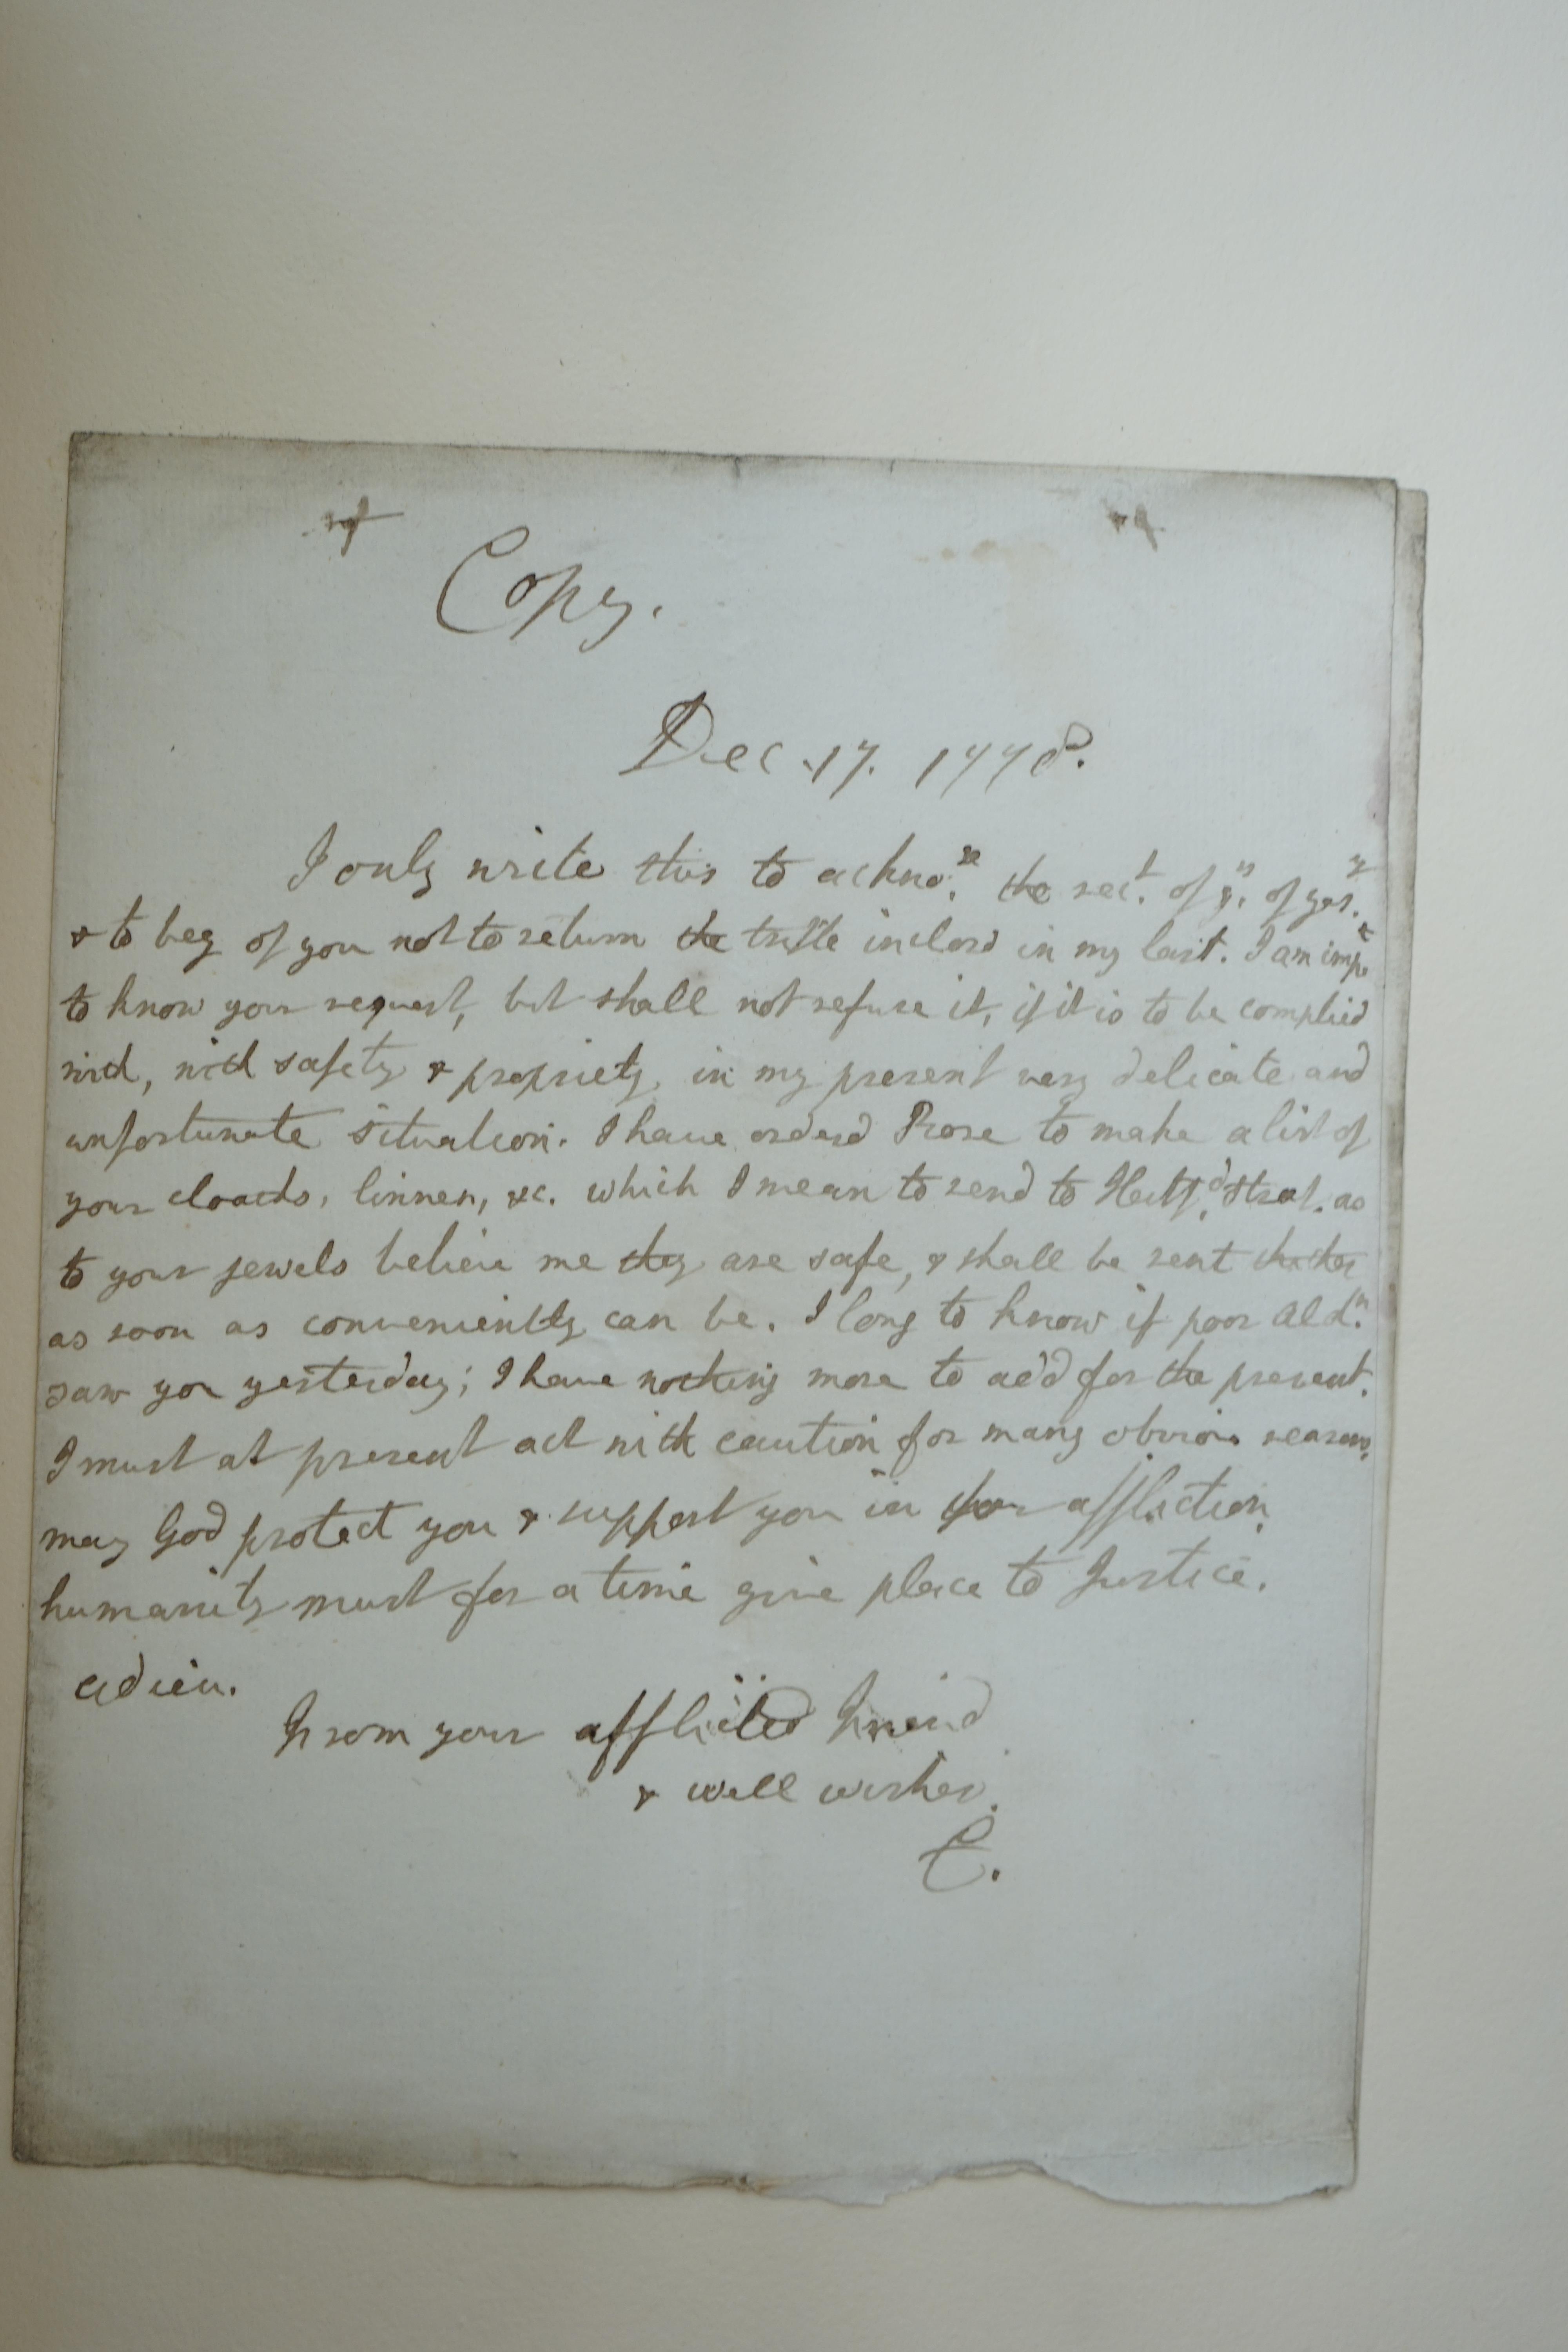 Copy.
Dec. 17. 1778.
I only write this to ackno:ge the rect. of yrs. of yesy.
& to beg of you not to return the trifle inclosd in my last. I am impt
to know your request, but shall not refuse it, if it is to be complied
with, with safety & propriety, in my present very delicate and
unfortunate situation. I have orderd Rose to make a list of
your cloaths, linnen, &c. which I mean to send to Hertfd. Street. as
to your jewels believe me they are safe, & shall be sent thither
as soon as conveniently can be. I long to know if poor Aldn.
saw you yesterday; I have nothing more to add for the present.
I must at present act with caution for many obvious reasons.
may God protect you & support you in your affliction,
humanity must for a time give place to Justice.
adieu.
From your afflicted Friend
& well wisher.
C.